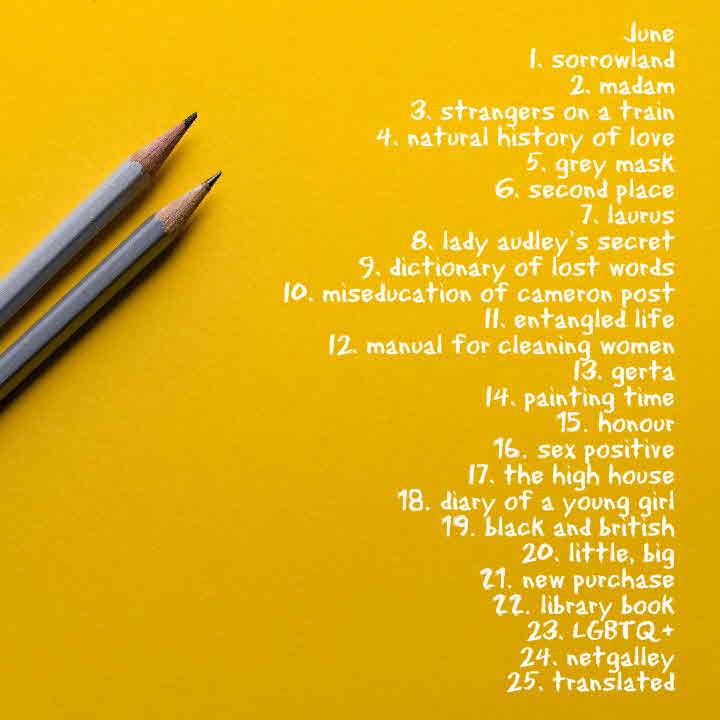 June
1. sorrowland
2. madam
3. strangers on a train
4. natural history of love
5. grey mask
6. second place
7. laurus
8. lady audley's secret
9. dictionary of lost words
10. miseducation of cameron post
11. entangled life
12. manual for cleaning women
13. gerta
14. painting time
15. honour
16. sex positive
17. the high house
18. diary of a young girl
19. black and british
20. little, big
21. new purchase
22. library book
23. LGBTQ+
24. netgalley
25. translated